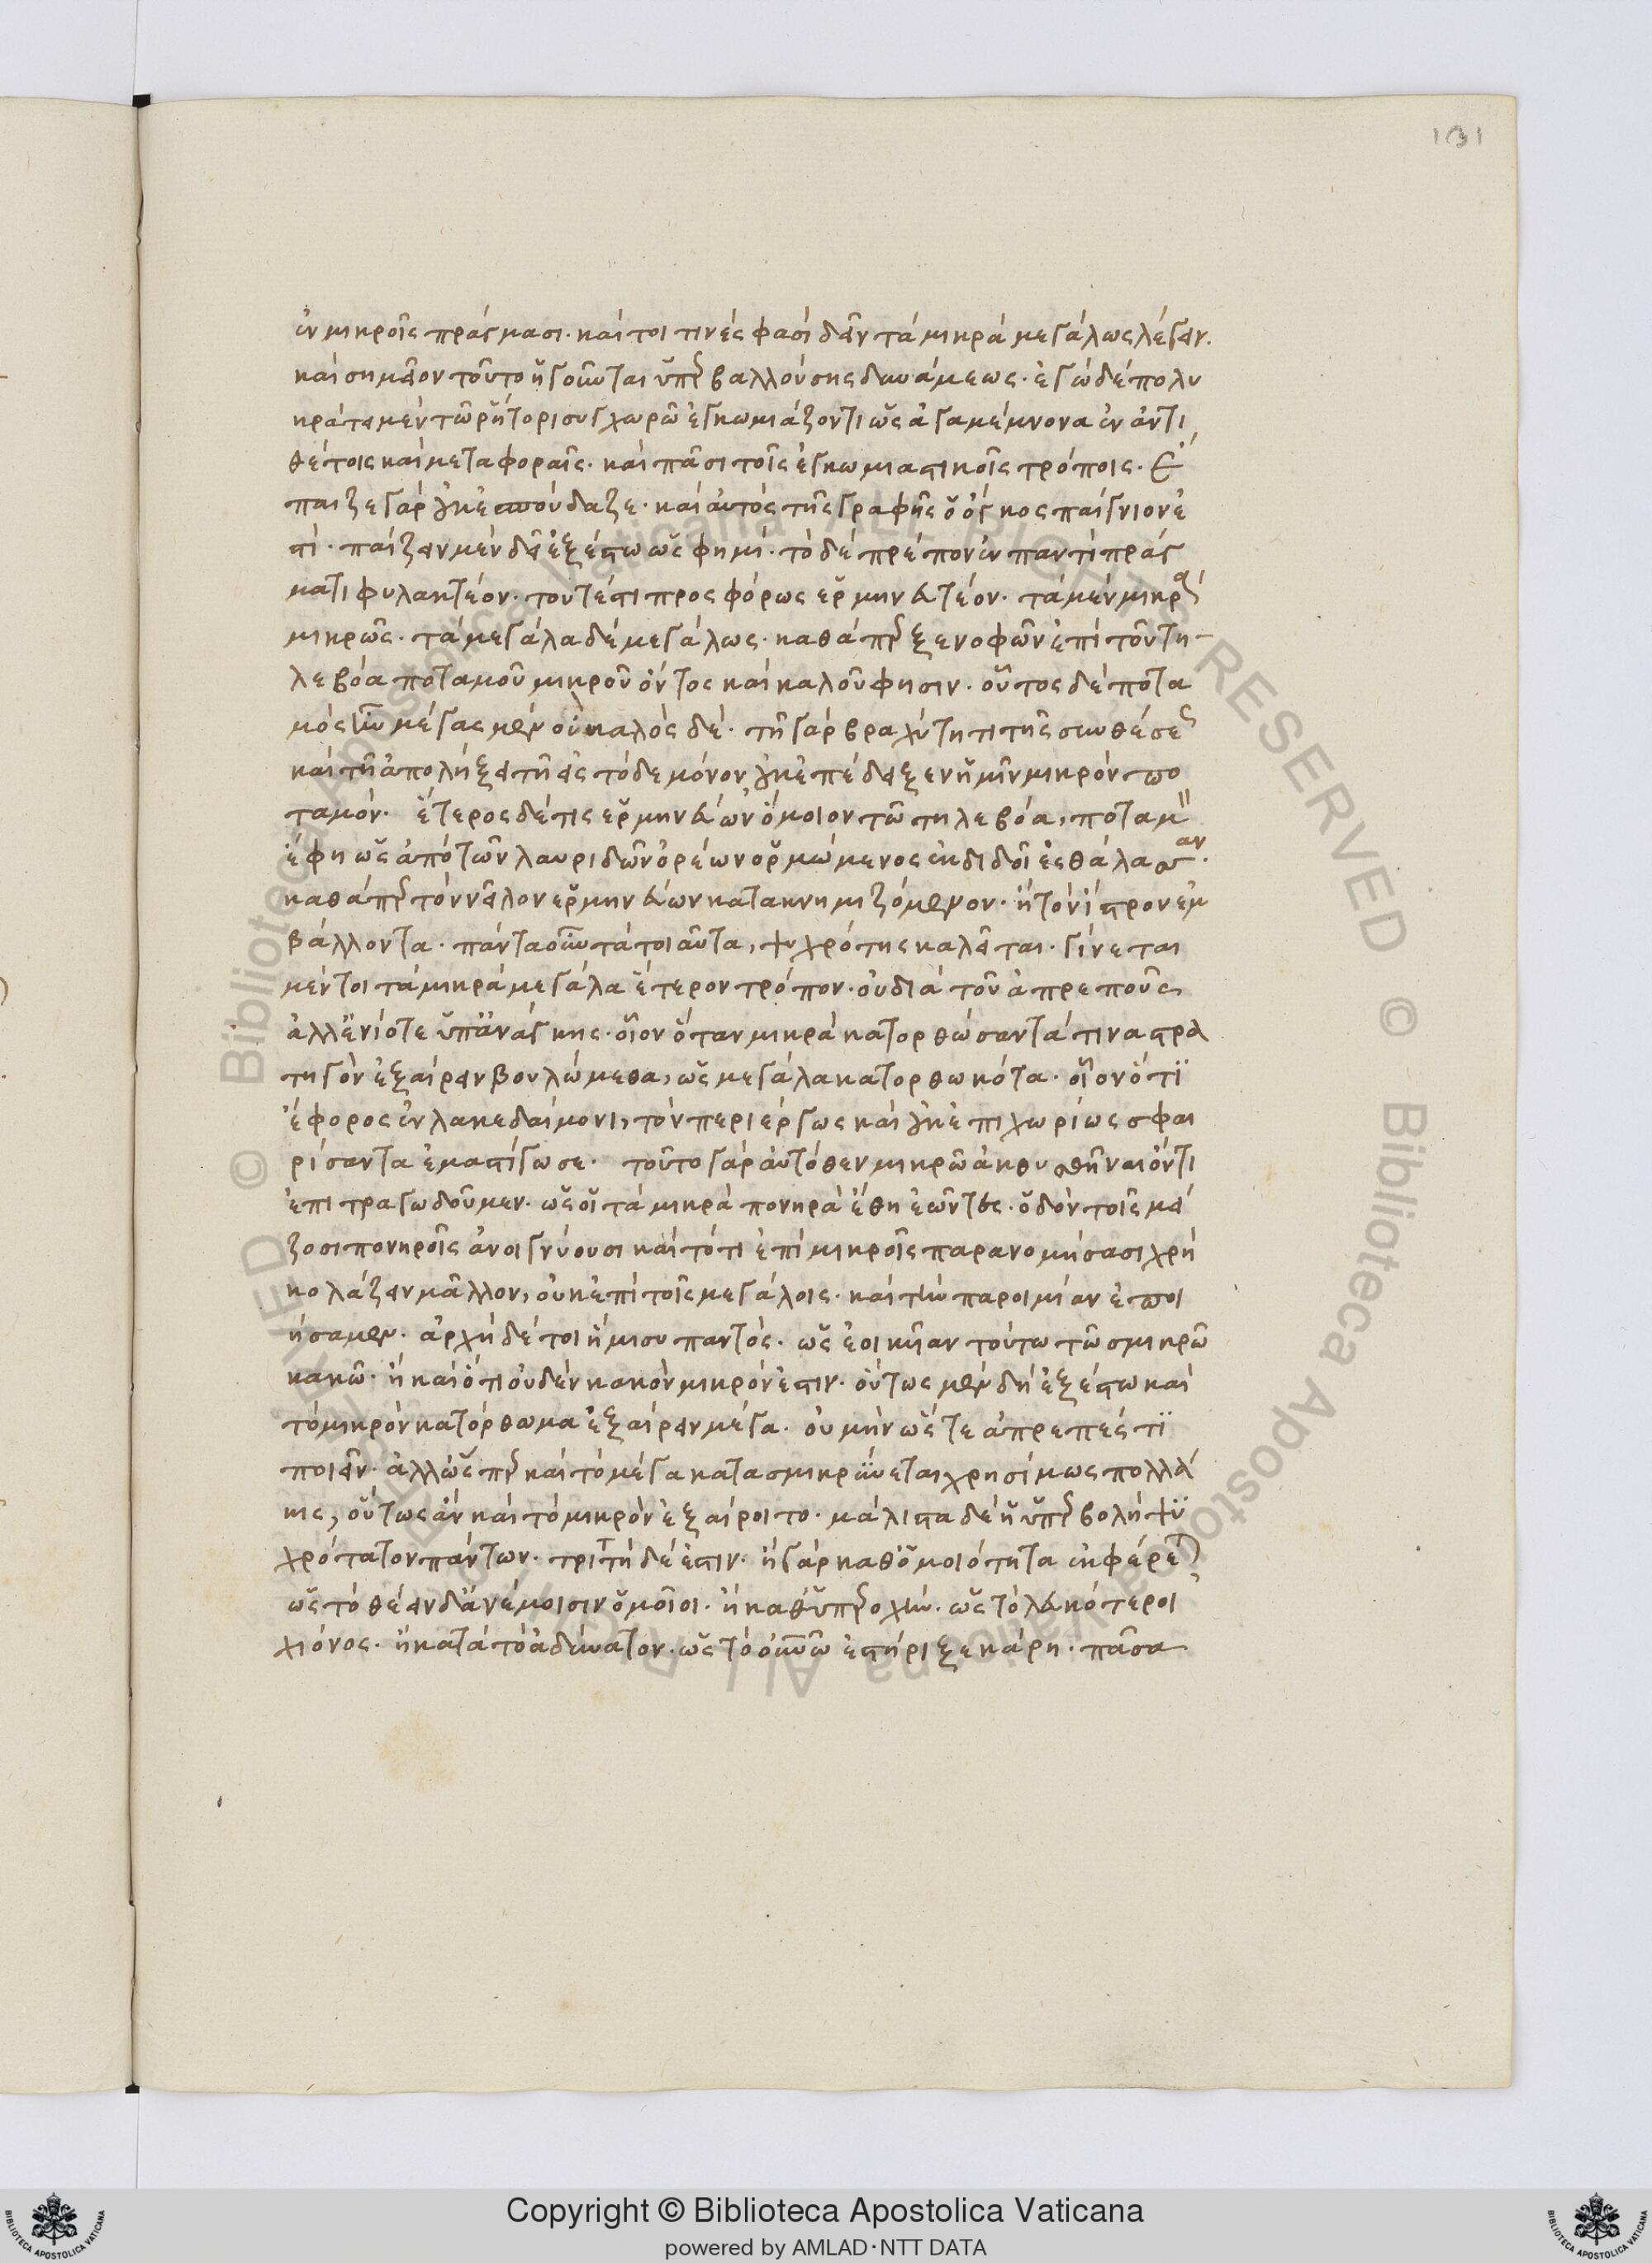 131
ἐν μικροῖς πράγμασι. καίτοι τινές φασί δεῖν τά μικρά μεγάλως λέγειν.
καί σημεῖον τοῦτο ἡγοῦνται ὑπερβαλλούσης δυνάμεως. ἐγώ δέ πολυ
κράτει μέν τῶ ῥήτορι συγχωρῶ ἐγκωμιάζοντι ὡς ἀγαμέμνονα ἐν ἀντι
θέτοις καί μεταφοραῖς. καί πᾶσι τοῖς ἐγκωμιαστικοῖς τρόποις. ἔ
παιζε γάρ οὐκ ἐσπούδαζε. καί αὐτός τῆς γραφῆς ὁ ὄγκος παίγνιον ἐ
στί. παίζειν μέν δή ἐξέστω ὡς φημί. τό δέ πρέπον ἐν παντί πράγ
ματι φυλακτέον. τουτέστι προσφόρως ἑρμηνευτέον. τά μέν μικρά
μικρῶς. τά μεγάλα δέ μεγάλως. καθάπερ ξενοφῶν ἐπί τοῦ τη
λεβόα ποταμοῦ μικροῦ ὄντος καί καλοῦ φησιν. οὗτος δέ ποτα
μός ἦν μέγας μέν οὐ καλός δέ. τῆ γάρ βραχύτητι τῆς συνθέσεως
καί τῆ ἀπολήξει τῆ εἰς τό δε μόνον οὐκ ἐπέδειξεν ἡμῖν μικρόν πο
ταμόν. ἕτερος δέ τις ἑρμηνεύων ὅμοιον τῶ τηλεβόα, ποταμὸν
ἔφη ὡς ἀπό τῶν λαυριδῶν ὀρέων ὁρμώμενος ἐκδιδοῖ ἐς θάλασσαν.
καθάπερ τόν νεῖλον ἑρμηνεύων κατακνημιζόμενον. ἤ τόν ἴστρον ἐμ
βάλλοντα. πάντα οὖν τά τοιαῦτα, ψυχρότης καλεῖται. γίνεται
μέντοι τά μικρά μεγάλα ἕτερον τρόπον. οὐ διά τοῦ ἀπρεποῦς,
ἀλλ' ἐνίοτε ὑπ' ἀνάγκης. οἷον ὅταν μικρά κατορθώσαντά τινα στρα
τηγόν ἐξαίρειν βουλώμεθα, ὡς μεγάλα κατορθωκότα. οἷον ὅτι
ἔφορος ἐν λακεδαίμονι, τόν περιέργως καί οὐκ ἐπιχωρίως σφαι
ρίσαντα ἐμαστίγωσε. τοῦτο γάρ αὐτόθεν μικρῶ ἀκουσθῆναι ὄντι
ἐπιτραγωδοῦμεν. ὡς οἱ τά μικρά πονηρά ἔθη ἐῶντες. ὁδόν τοῖς μεί
ζοσι πονηροῖς ἀνοιγνύουσι καί τό τι ἐπί μικροῖς παρανομήσασι χρή
κολάζειν μᾶλλον, οὐκ ἐπί τοῖς μεγάλοις. καί τήν παροιμίαν ἐποι
ήσαμεν. ἀρχή δέ τοι ἥμισυ παντός. ὡς ἐοικῆαν τούτω τῶ σμικρῶ
κακῶ. ἤ καί ὅτι οὐδέν κακόν μικρόν ἐστιν. οὕτως μέν δή ἐξέστω καί
τό μικρόν κατόρθωμα ἐξαίρειν μέγα. οὐ μήν ὥστε ἀπρεπές τι
ποιεῖν. ἀλλ' ὥσπερ καί τό μέγα κατασμικρύνεται χρησίμως πολλά
κις, οὕτως ἄν καί τό μικρόν ἐξαίροιτο. μάλιστα δέ ἡ ὑπερβολή ψυ
χρότατον πάντων. τριττή δέ ἐστιν. ἤ γάρ καθ' ὁμοιότητα ἐκφέρεται,
ὡς τό θέειν δ' ἀνέμοισιν ὁμοῖοι. ἤ καθ' ὑπεροχήν. ὡς τό λευκότεροι
χιόνος. ἤ κατά τό ἀδύνατον. ὡς τό οὐρανῶ ἐστήριξε κάρη. πᾶσα
Copyright © Biblioteca Apostolica Vaticana
powered by AMLAD·NTT DATA